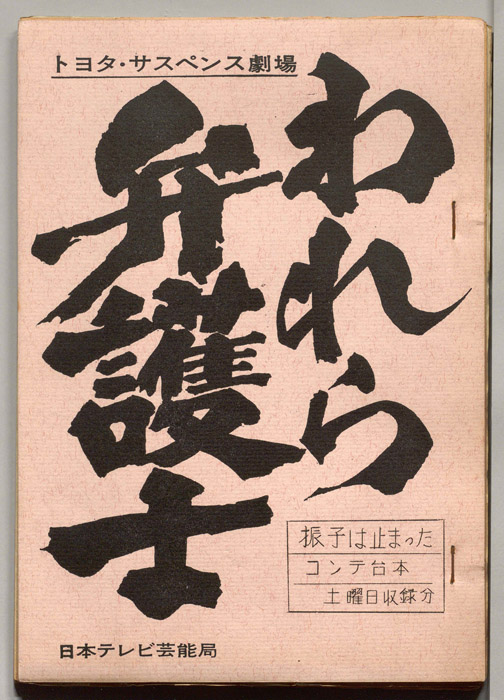 トヨタ・サスペンス劇場
われら
弁護士
振子は止まった
コンテ台本
土曜日収録分
日本テレビ芸能局